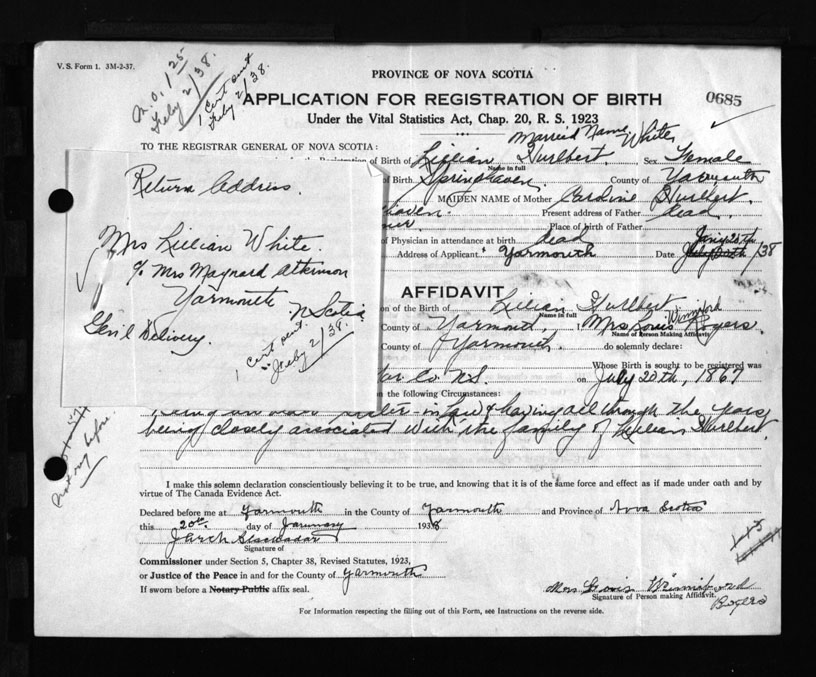 V. S. Form 1. 3M-2-37.
M.O. 1 25
Feby 2/38.
1 Cert sent
Feby 2/38.
PROVINCE OF NOVA SCOTIA
APPLICATION FOR REGISTRATION OF BIRTH
0685
Under the Vital Statistics Act, Chap. 20, R. S. 1923
Married Name White
TO THE REGISTRAR GENERAL OF NOVA SCOTIA:
Registration of Birth of Lillian Hurlbert. Sex Female
Name in full
of Birth Springhaven County of Yarmouth
MAIDEN NAME of Mother Caroline Hurlbert.
haven. Present address of Father dead
Place of birth of Father
of Physician in attendance at birth dead
Jany 20th
Address of Applicant Yarmouth Date /38
Return Address.
Mrs Lillian White.
c/o Mrs Maynard Atkinson
Yarmouth
N Scotia
Gen'l Delivery.
1 Cert sent.
Feby 2/38.
AFFIDAVIT
on of the Birth of Lillian Hurlbert
Name in full
Winniford
County of Yarmouth, I Mrs Lovis Rogers.
Name of Person Making Affidavit
County of Yarmouth. do solemnly declare:
Whose Birth is sought to be registered was
Co. N.S. on July 20th, 1867
the following Circumstances:
in law & having all through the years
being closely associated with the family of Lillian Hurlbert.
before.
I make this solemn declaration conscientiously believing it to be true, and knowing that it is of the same force and effect as if made under oath and by
virtue of The Canada Evidence Act.
Declared before me at Yarmouth in the County of Yarmouth and Province of Nova Scotia
this 20th day of January 1938
Signature of
Commissioner under Section 5, Chapter 38, Revised Statutes, 1923,
or Justice of the Peace in and for the County of Yarmouth
If sworn before a Notary Public affix seal.
Mrs Lovis Winniford
Signature of Person making Affidavit.
Rogers
For Information respecting the filling out of this Form, see Instructions on the reverse side.